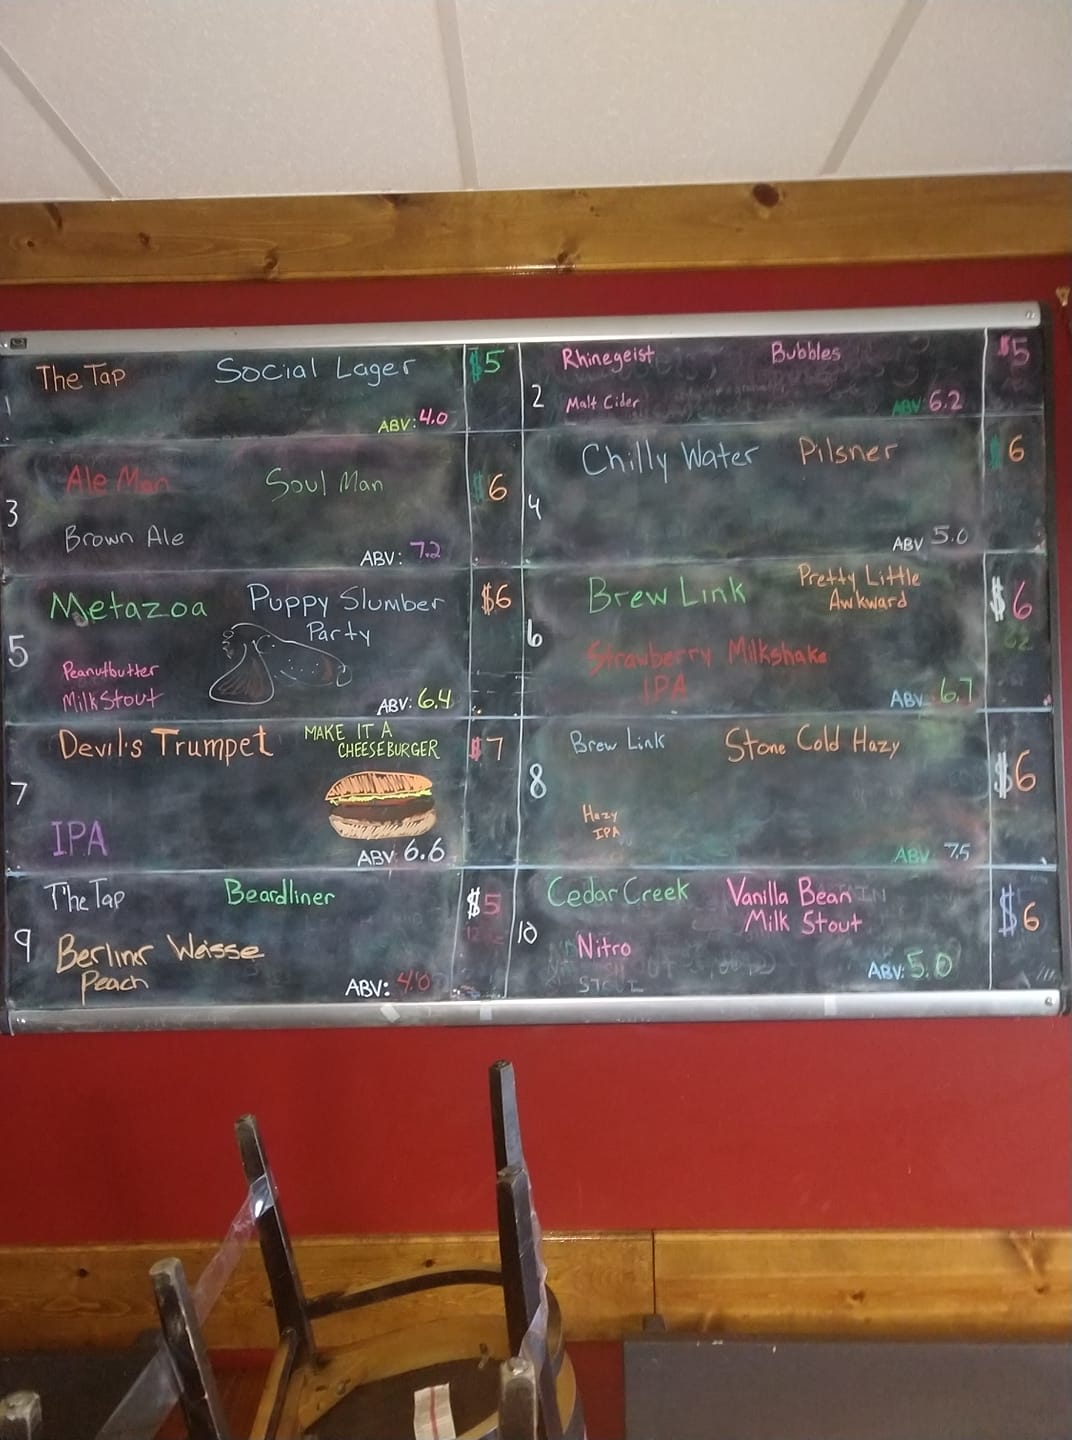 1 The Tap Social Lager $5
ABV: 4.0
2 Rhinegeist Bubbles $5
Malt Cider ABV: 6.2
3 Ale Man Soul Man $6
Brown Ale ABV: 7.2
4 Chilly Water Pilsner $6
ABV 5.0
5 Metazoa Puppy Slumber $6
Party
Peanutbutter
Milk Stout ABV: 6.4
6 Brew Link Pretty Little $6
Awkward
Strawberry Milkshake
IPA ABV 6.7
7 Devil's Trumpet MAKE IT A $7
CHEESEBURGER
IPA ABV 6.6
8 Brew Link Stone Cold Hazy $6
Hazy
IPA ABV 7.5
9 The Tap Beardliner $5
Berliner Weisse
Peach ABV: 4.8
10 Cedar Creek Vanilla Bean $6
Milk Stout
Nitro ABV: 5.0